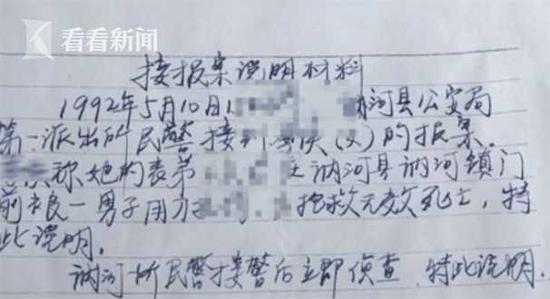 看看新闻
接报案说明材料
1992年5月10日1 讷河县公安局
第一派出所民警接到 (女)的报案.
称她的表弟 在讷河县讷河镇门
前被一男子用刀 抢救无效死亡,特
此说明.
讷河所民警接警后立即侦查,特此说明.